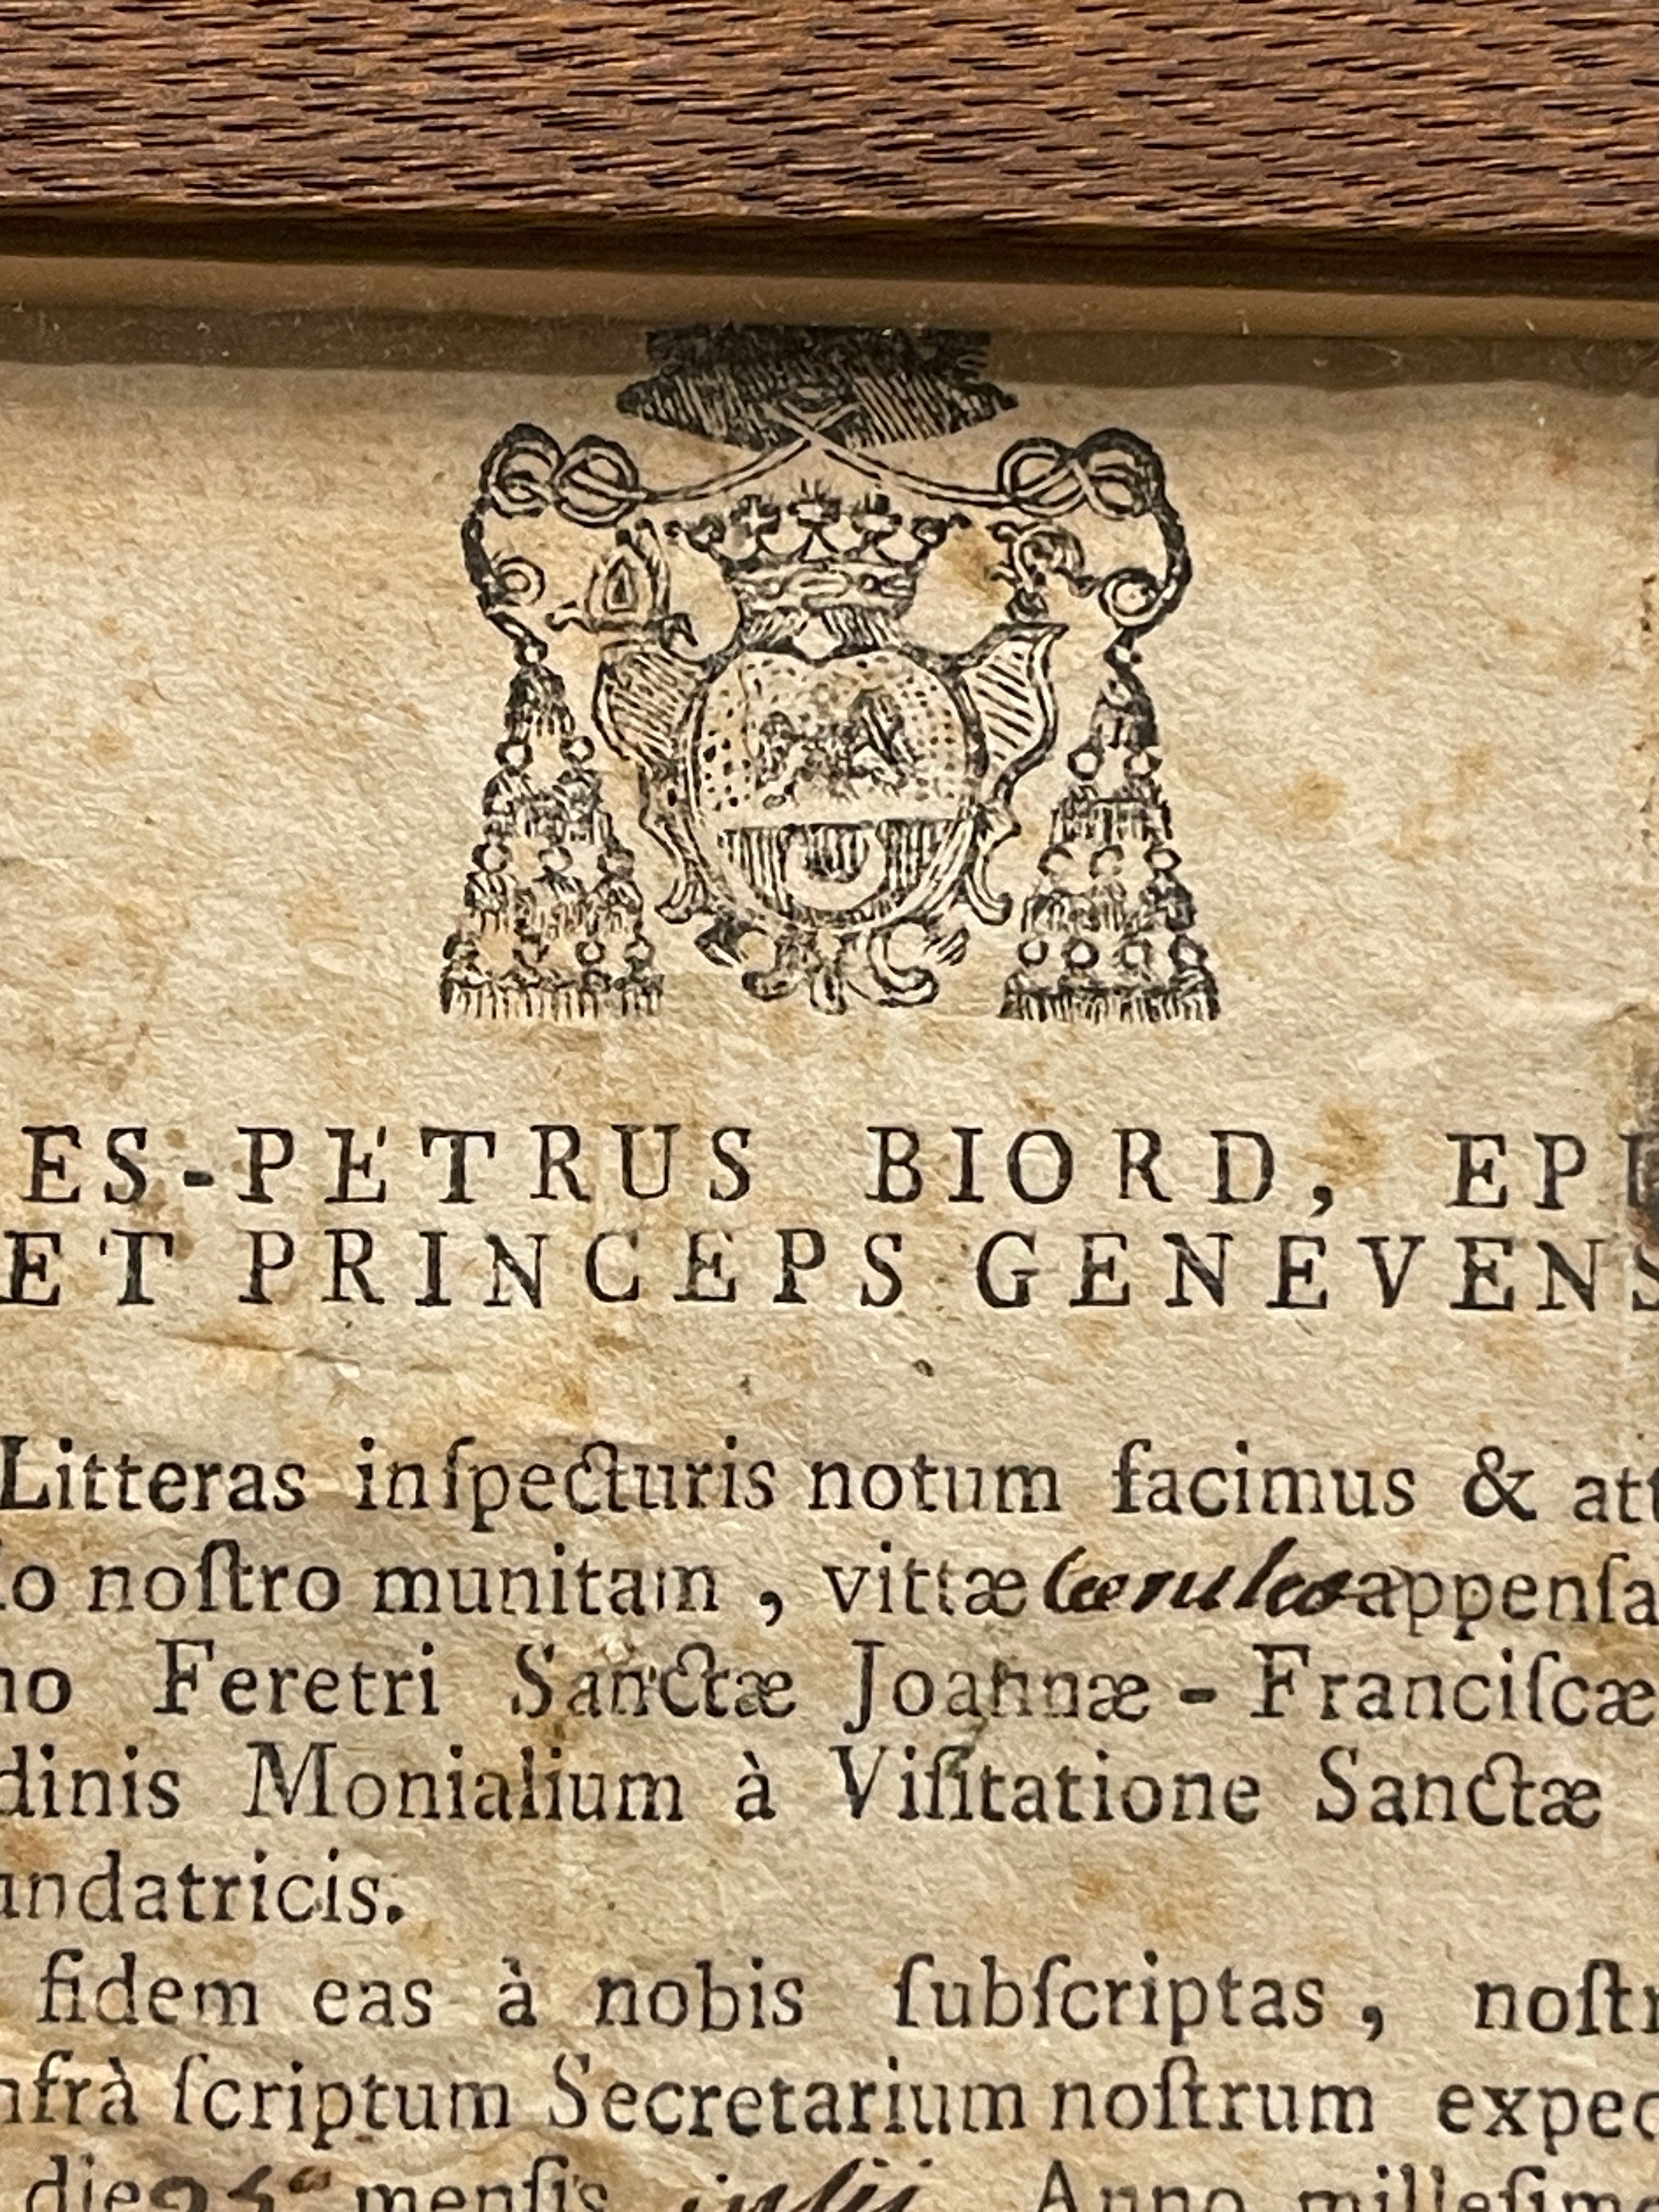 ES-PETRUS BIORD, EP
ET PRINCEPS GENEVENS
Litteras inſpecturis notum facimus & att
lo noſtro munitam, vittæ cœrulea appenſa
no Feretri Sanctæ Joannæ-Franciſcæ
dinis Monialium à Viſitatione Sanctæ
undatricis.
fidem eas à nobis ſubſcriptas, noſtr
nfrà ſcriptum Secretarium noſtrum exped
die 25a menſis julii Anno milleſimo